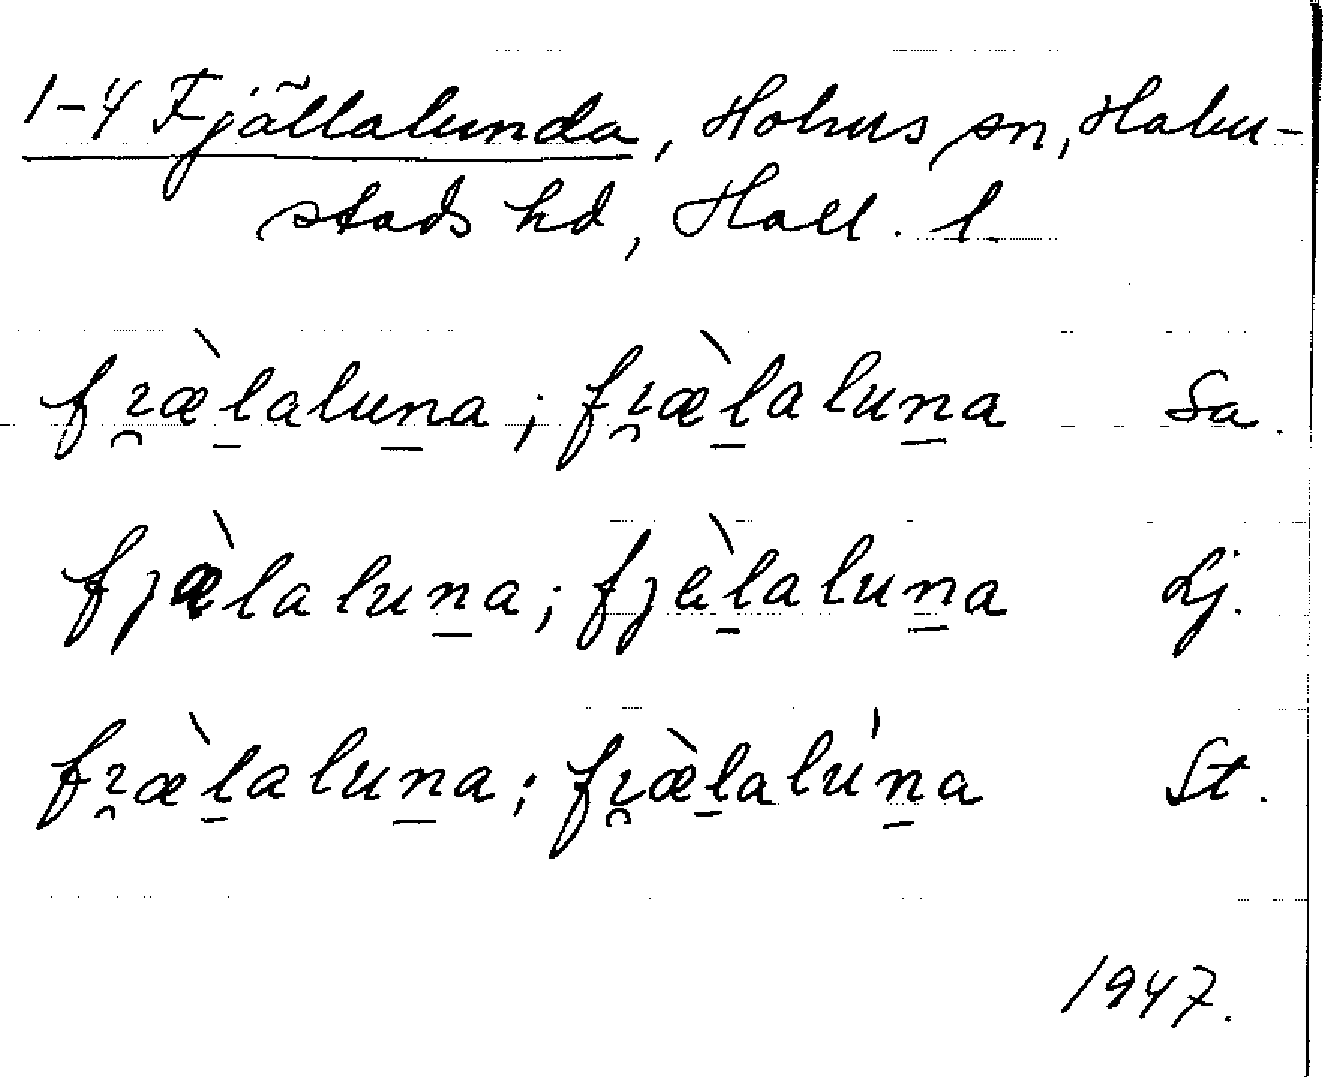 1-4 Fjällalunda, Holms sn, Halm-
stads hd, Hall. l.
fı̯æ̀ḻaluṉa ; fı̯æ̀ḻaluṉa Sa.
fjæ̀laluṉa ; fjèḻaluṉa Lj.
fı̯æ̀ḻaluṉa ; fı̯æ̀ḻalúṉa St.
1947.